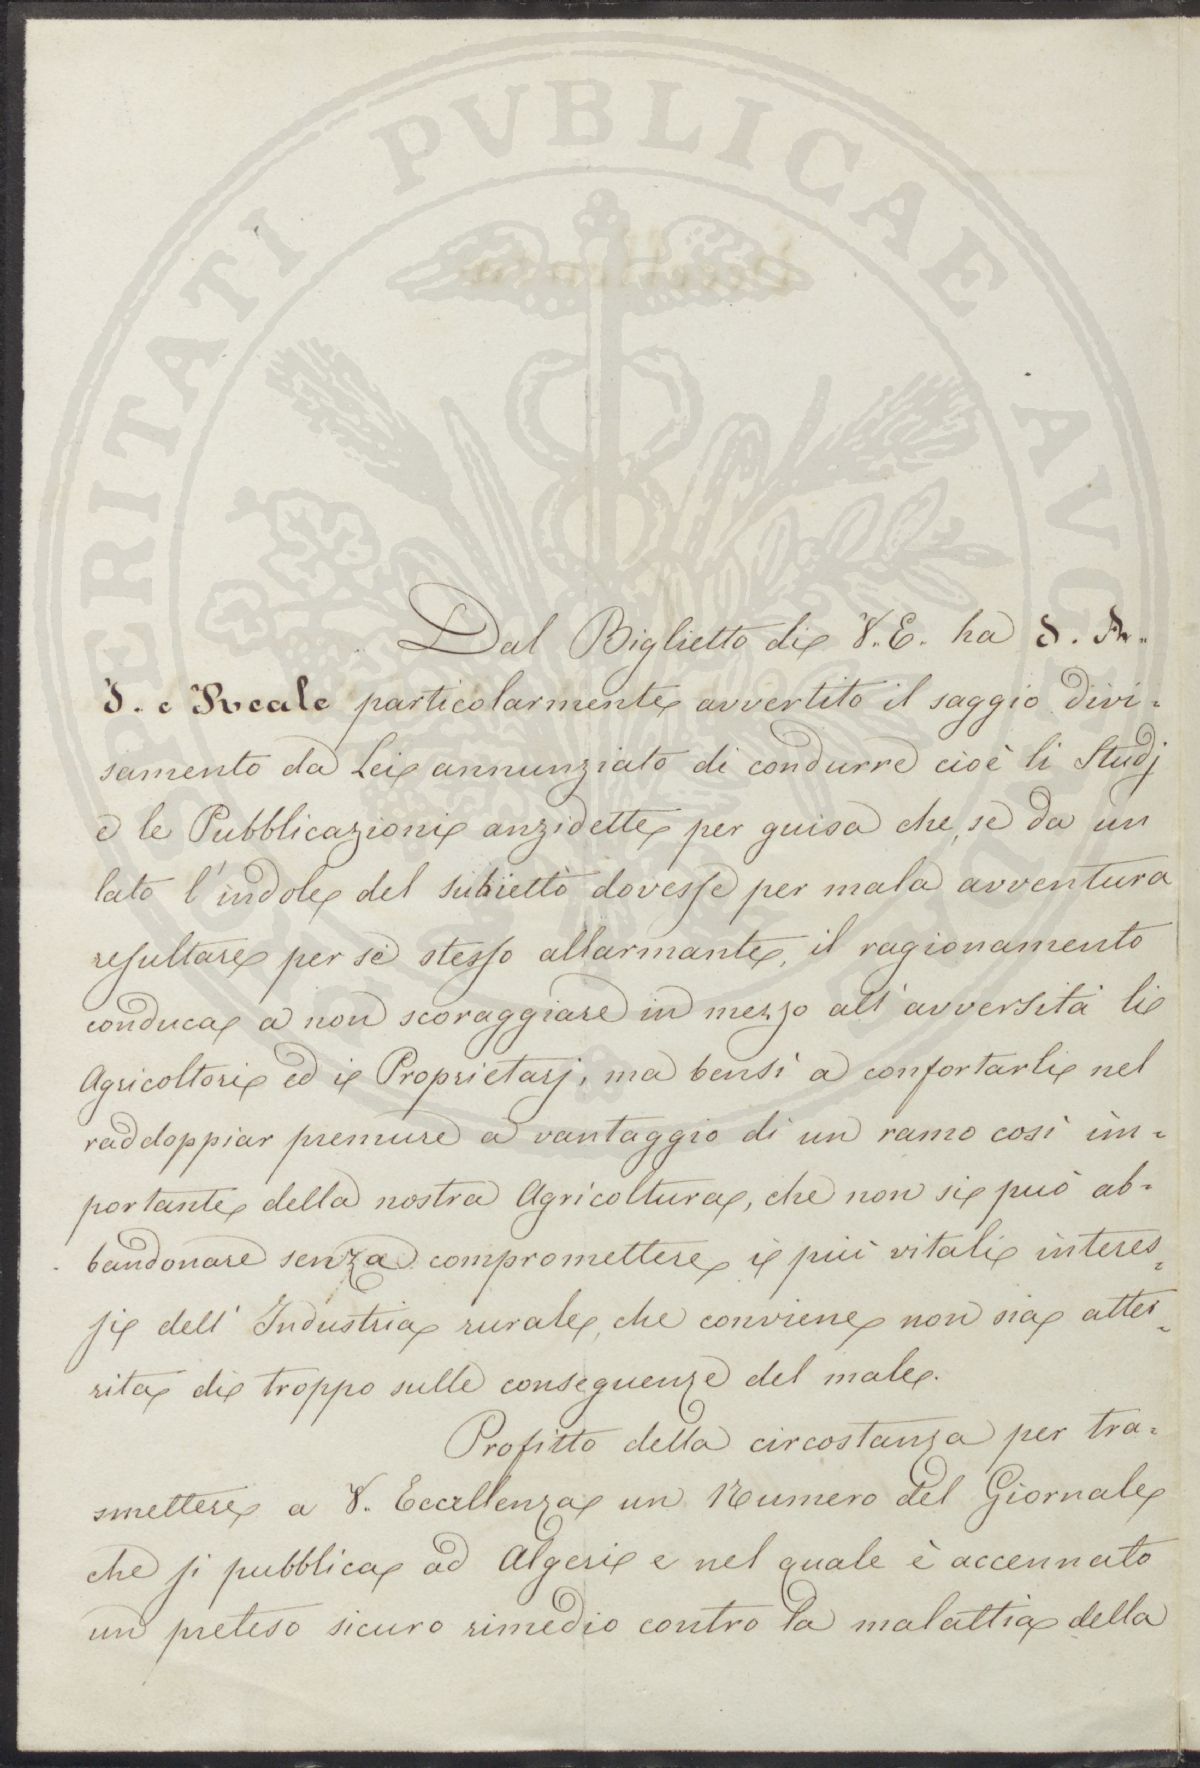 PROSPERITATI PVBLICAE AVGENDAE
Dal Biglietto di V. E. ha S. A.
I. e Reale particolarmente avvertito il saggio divi=
samento da Lei annunziato di condurre cioè li Studj
e le Pubblicazioni anzidette per guisa che, se da un
lato l'indole del subietto dovesse per mala avventura
resultare per sè stesso allarmante, il ragionamento
conduca a non scoraggiare in mezzo all'avversità li
Agricoltori ed i Proprietarj, ma bensì a confortarli nel
raddoppiar premure a vantaggio di un ramo così im=
portante della nostra Agricoltura, che non si può ab=
bandonare senza compromettere i più vitali interes=
si dell'Industria rurale, che conviene non sia atter=
rita di troppo sulle conseguenze del male.
Profitto della circostanza per tra=
smettere a V. Eccellenza un Numero del Giornale
che si pubblica ad Algeri e nel quale è accennato
un preteso sicuro rimedio contro la malattia della